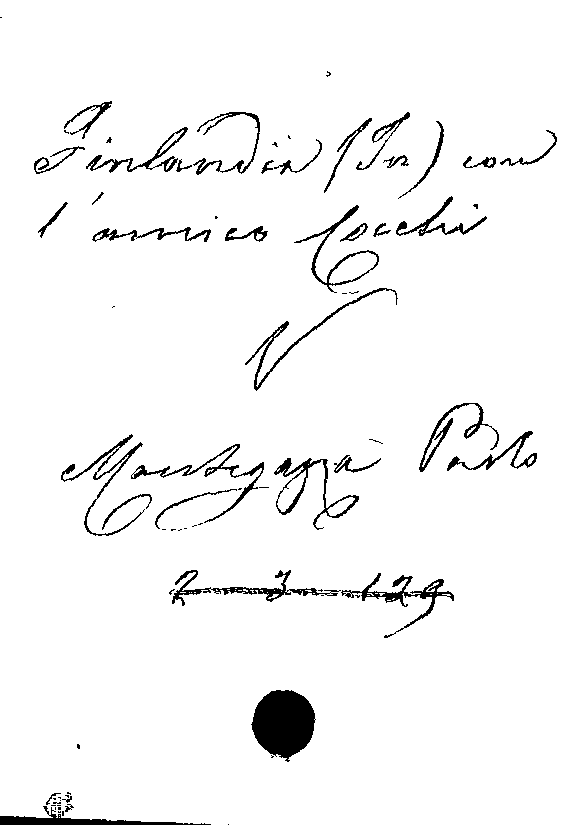 Finlandia (In) con
l'amico Cocchi
V
Mantegazza Paolo
2 3 129